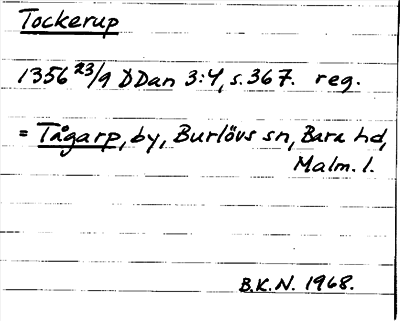 Tockerup
1356 23/9 DDan 3:4, s. 367. reg.
= Tågarp, by, Burlövs sn, Bara hd,
Malm. l.
B.K.N. 1968.